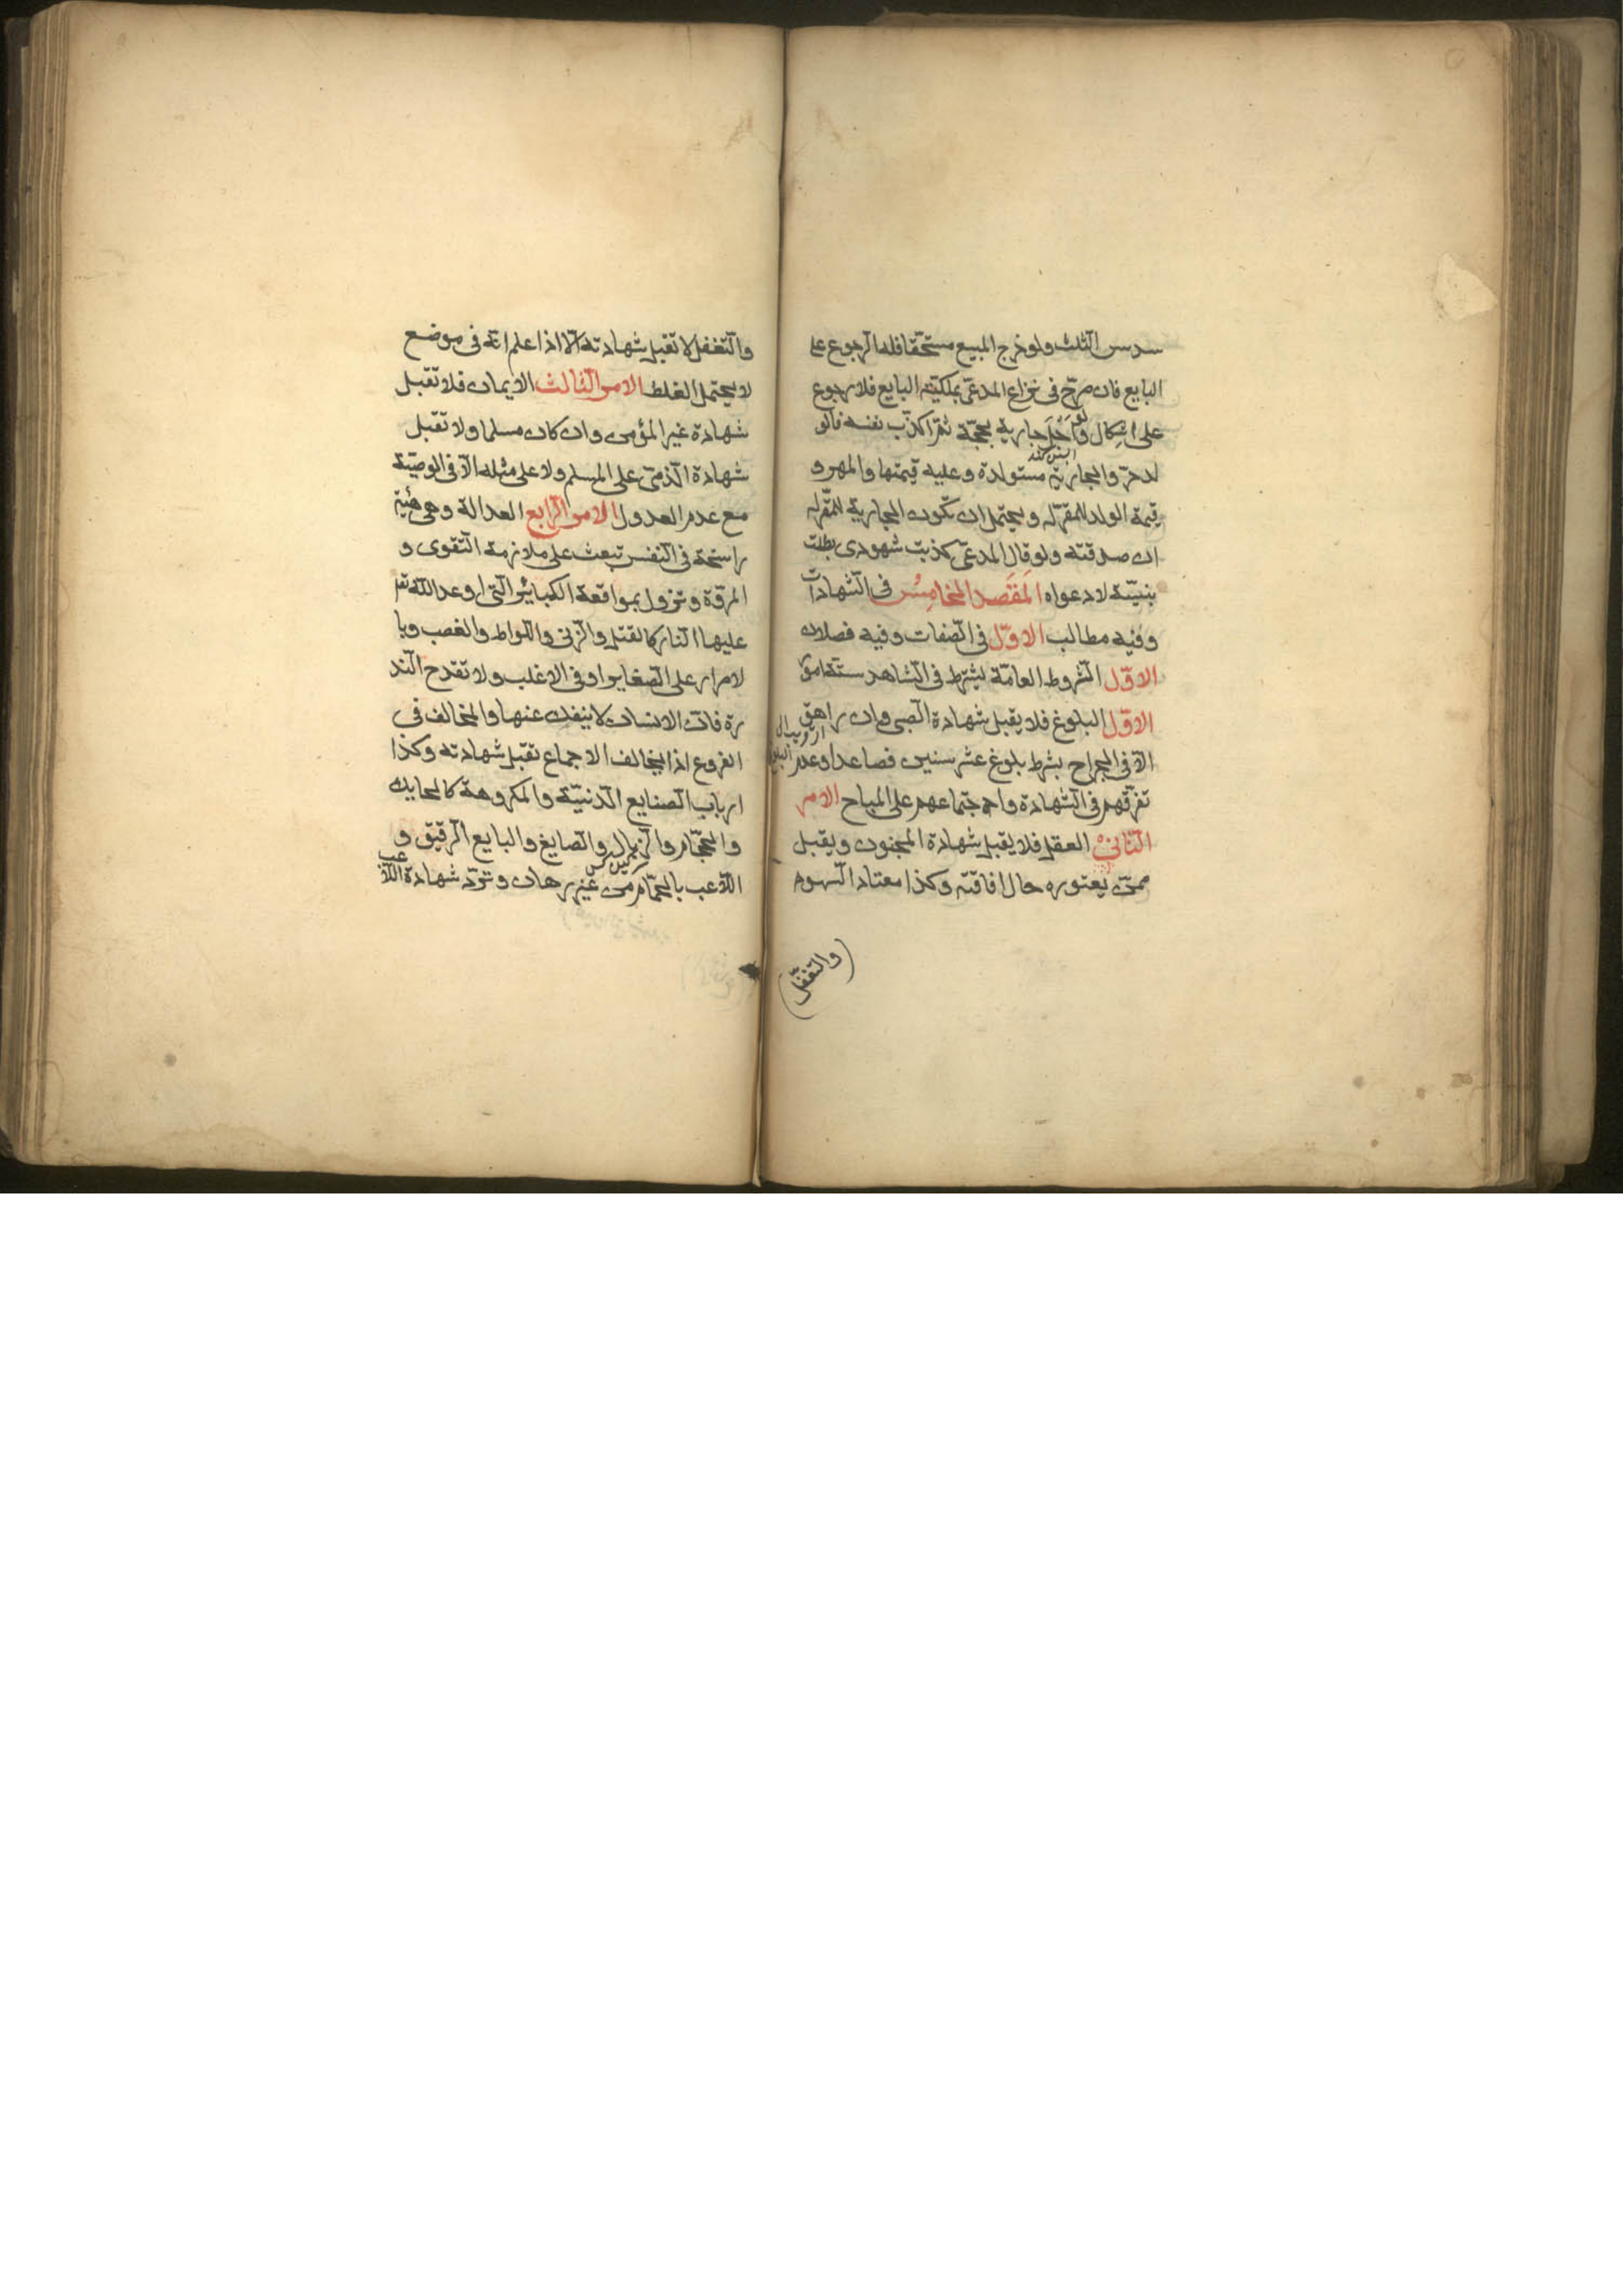 سدس الثلث ولو خرج المبيع مستحقا فله الرجوع على
البايع فان صرح في نزاع المدعي بملكية البايع فلا رجوع
على اشكال ولو احبل جارية بحجة ثم اكذب نفسه فالو
لد حر والجارية مستولدة وعليه قيمتها والمهر و
قيمة الولد للمقر له ويحتمل ان تكون الجارية للمقر له
ان صدقته ولو قال المدعي كذبت شهودي بطلت
بينته لا دعواه المقصد الخامس في الشهادات
وفيه مطالب الاول في الصفات وفيه فصلان
الاول الشروط العامة يشترط في الشاهد ستة امور
الاول البلوغ فلا يقبل شهادة الصبي وان راهق
الا في الجراح بشرط بلوغ عشر سنين فصاعدا وعدم
تفرقهم في الشهادة واجتماعهم على المباح الامر
الثاني العقل فلا يقبل شهادة المجنون ويقبل
ممن يعتوره حال افاقته وكذا معتاد السهو
(والتغفل)
والتغفل لا تقبل شهادته الا اذا علم انه في موضع
لا يحتمل الغلط الامر الثالث الايمان فلا تقبل
شهادة غير المؤمن وان كان مسلما ولا تقبل
شهادة الذمي على المسلم ولا على مثله الا في الوصية
مع عدم العدول الامر الرابع العدالة وهي هيئة
راسخة في النفس تبعث على ملازمة التقوى و
المروة وتزول بمواقعة الكبائر التي اوعد الله تع
عليها النار كالقتل والزنى واللواط والغصب وبا
لاصرار على الصغاير او في الاغلب ولا تقدح الند
رة فان الانسان لا ينفك عنها والمخالف في
الفروع اذا لم يخالف الاجماع تقبل شهادته وكذا
ارباب الصنايع الدنية والمكروهة كالحايك
والحجام والزبال والصايغ والبايع الرقيق و
اللاعب بالحمام من غير رهان وترد شهادة اللاعب